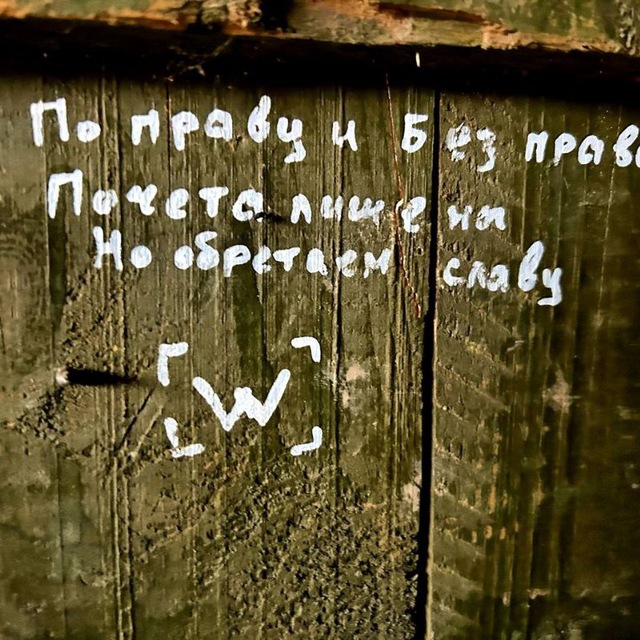 По праву и Без права
Почета лишены
Но обретаем славу
[W]